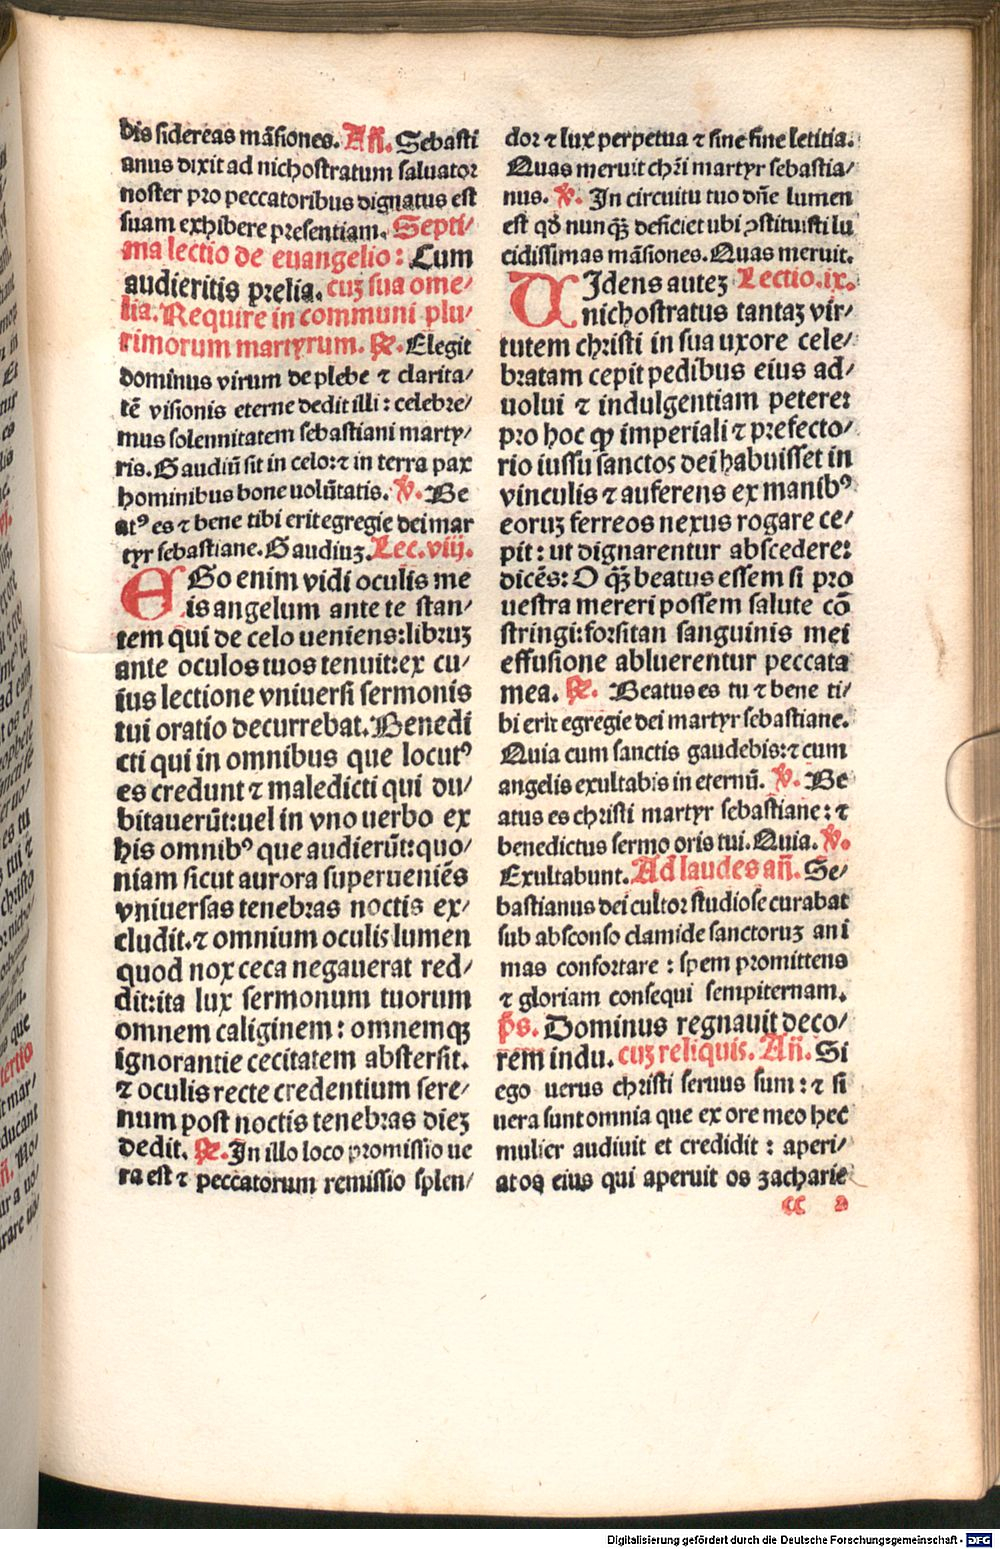 dis sidereas mãsiones. Añ. Sebasti
anus dixit ad nichostratum saluator
noster pro peccatoribus dignatus est
suam exhibere presentiam. Septi/
ma lectio de euangelio: Cum
audieritis prelia. cuʒ sua ome/
lia. Require in communi plu/
rimorum martyrum. ℞. Elegit
dominus virum de plebe ⁊ clarita/
tẽ visionis eterne dedit illi: celebre/
mus solennitatem sebastiani marty/
ris. Gaudiũ sit in celo:⁊ in terra pax
hominibus bone uolũtatis. ℣. Be
atꝰ es ⁊ bene tibi erit egregie dei mar
tyr sebastiane. Gaudiuʒ. Lec. viij.
EGo enim vidi oculis me
is angelum ante te stan/
tem qui de celo ueniens:libruʒ
ante oculos tuos tenuit:ex cu/
ius lectione vniuersi sermonis
tui oratio decurrebat. Benedi
cti qui in omnibus que locutꝰ
es credunt ⁊ maledicti qui du/
bitauerũt:uel in vno uerbo ex
his omnibꝰ que audierũt:quo/
niam sicut aurora superueniẽs
vniuersas tenebras noctis ex/
cludit.⁊ omnium oculis lumen
quod nox ceca negauerat red/
dit:ita lux sermonum tuorum
omnem caliginem: omnemqʒ
ignorantie cecitatem abstersit.
⁊ oculis recte credentium sere/
num post noctis tenebras dieʒ
dedit. ℞. In illo loco promissio ue
ra est ⁊ peccatorum remissio splen/
dor ⁊ lux perpetua ⁊ sine fine letitia.
Quas meruit chr̃i martyr sebastia/
nus. ℣. In circuitu tuo dñe lumen
est qđ nunqʒ̃ deficiet ubi ꝯstituisti lu
cidissimas mãsiones. Quas meruit.
UIdens auteʒ Lectio.ix.
nichostratus tantaʒ vir/
tutem christi in sua uxore cele/
bratam cepit pedibus eius ad/
uolui ⁊ indulgentiam petere:
pro hoc ꝙ imperiali ⁊ prefecto/
rio iussu sanctos dei habuisset in
vinculis ⁊ auferens ex manibꝰ
eoruʒ ferreos nexus rogare ce/
pit: ut dignarentur abscedere:
dicẽs: O qʒ̃ beatus essem si pro
uestra mereri possem salute cõ
stringi:forsitan sanguinis mei
effusione abluerentur peccata
mea. ℞. Beatus es tu ⁊ bene ti/
bi erit egregie dei martyr sebastiane.
Quia cum sanctis gaudebis:⁊ cum
angelis exultabis in eternũ. ℣. Be
atus es christi martyr sebastiane: ⁊
benedictus sermo oris tui. Quia. ℣.
Exultabunt. Ad laudes añ. Se/
bastianus dei cultor studiose curabat
sub absconso clamide sanctoruʒ ani
mas confortare: spem promittens
⁊ gloriam consequi sempiternam.
p̃s. Dominus regnauit deco/
rem indu. cuʒ reliquis. Añ. Si
ego uerus christi seruus sum: ⁊ si
uera sunt omnia que ex ore meo hec
mulier audiuit et credidit: aperi/
at os eius qui aperuit os zacharie
cc 2
Digitalisierung gefördert durch die Deutsche Forschungsgemeinschaft - DFG